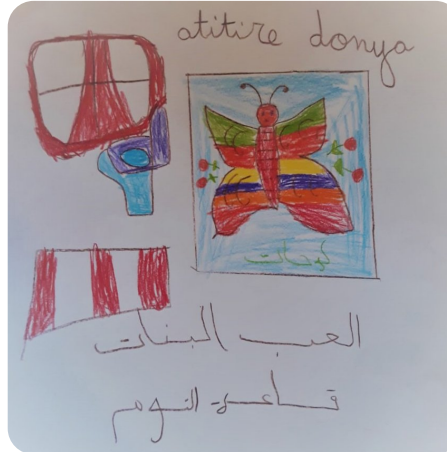 atitire donya
لوحات
العب البنات
قاعة النوم